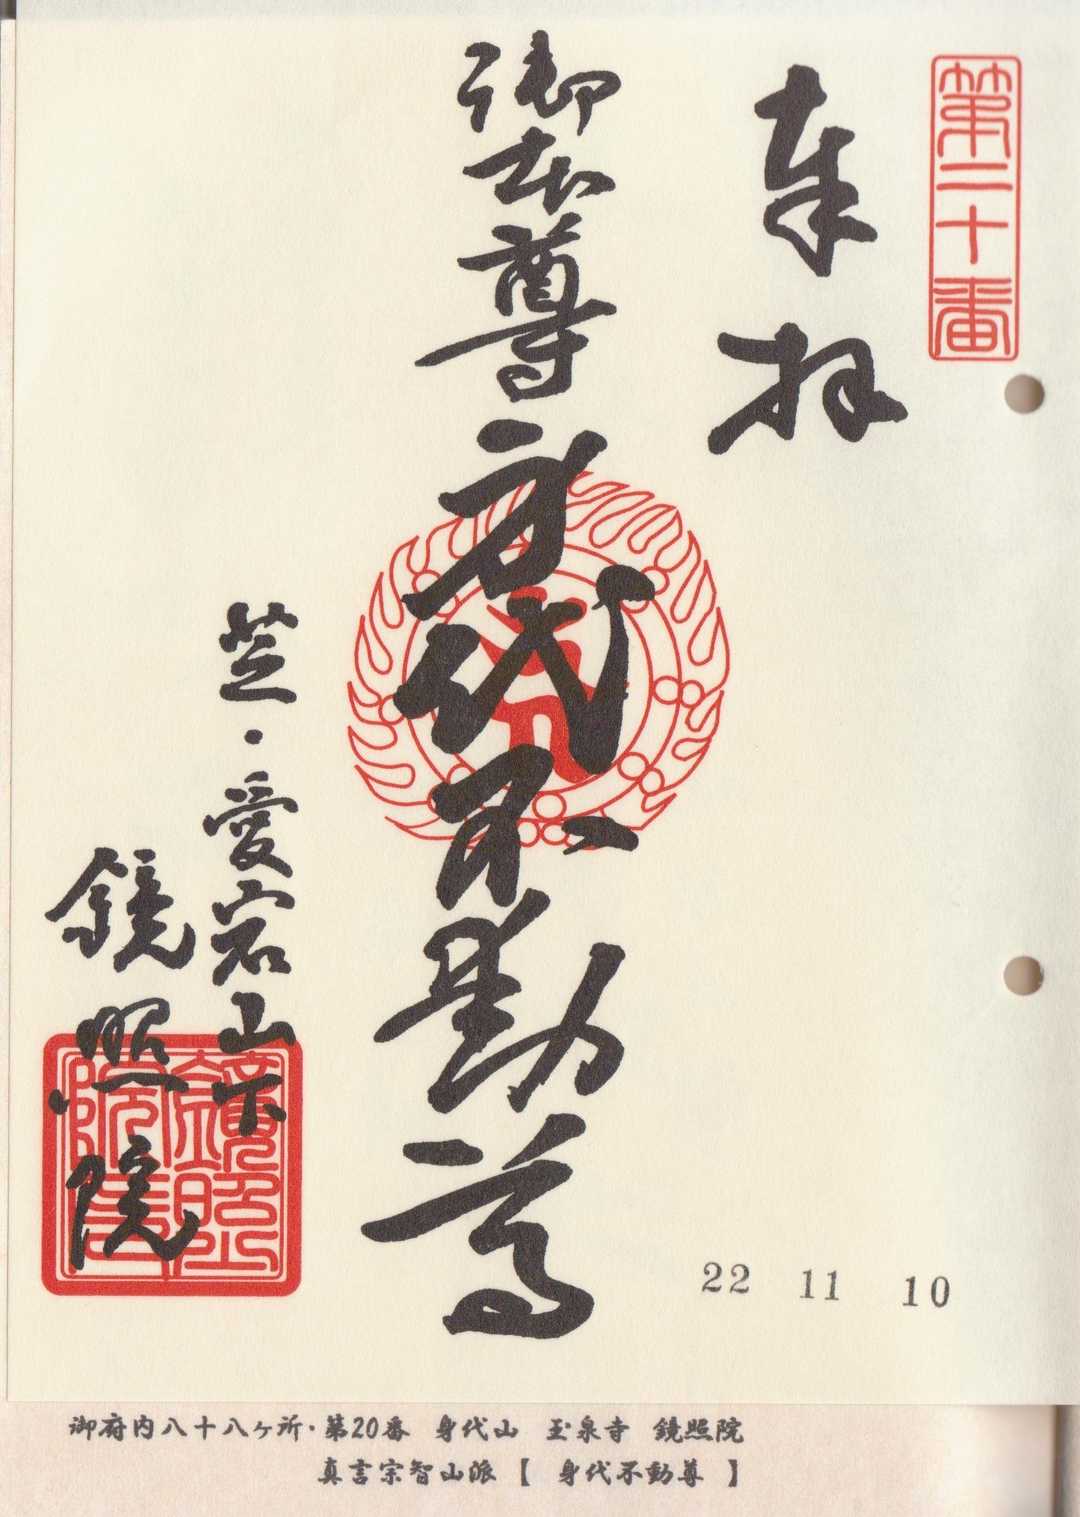 第二十番
奉拝
御本尊身代不動尊
芝・愛宕山下
鏡照院
鏡照院
22 11 10
御府内八十八ヶ所・第20番 身代山 玉泉寺 鏡照院
真言宗智山派 【 身代不動尊 】